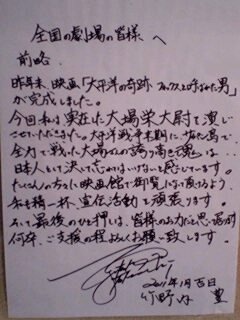 全国の劇場の皆様へ
前略
昨年末、映画「太平洋の奇跡 フォックスと呼ばれた男」
が完成しました。
今回私は実在した大場栄大尉を演じ
させていただきました。太平洋戦争末期に、サイパン島で
全力で戦った大場さんの誇り高き魂は…
日本人として決して忘れてはいけないと感じています。
たくさんの方々に映画館で御覧になって頂けるよう、
私も精一杯、宣伝活動を頑張ります。
最後のひと押しは、皆様のお力だと思います
何卒、ご支援の程よろしくお願い致します。
2011年1月吉日
竹野内 豊